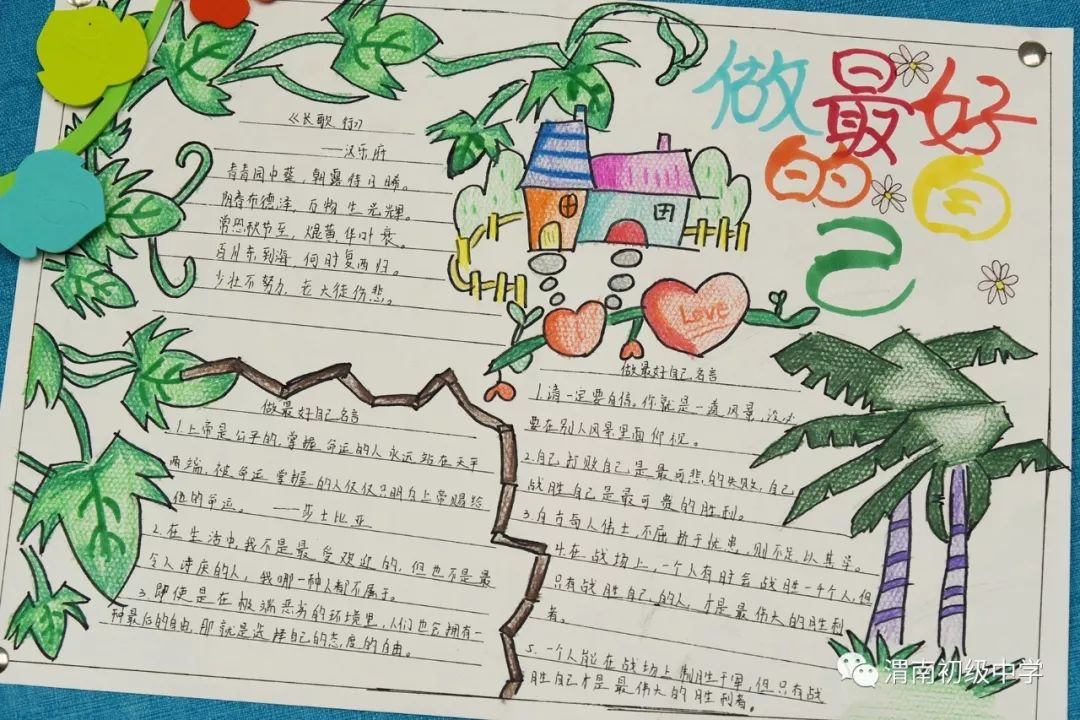 做最好
的自
己
《长歌行》
——汉乐府
青青园中葵，朝露待日晞。
阴春布德泽，万物生光辉。
常恐秋节至，焜黄华叶衰。
百川东到海，何时复西归。
少壮不努力，老大徒伤悲。
Love
做最好自己名言
1.上帝是公平的，掌握命运的人永远站在天平
两端，被命运掌握的人仅仅只明白上帝赐给
他的命运。 ——莎士比亚
2.在生活中，我不是最受欢迎的，但也不是最
令人讨厌的人，我哪一种人都不属于。
3.即使是在极端恶劣的环境里，人们也会拥有一
种最后的自由，那就是选择自己的态度的自由。
做最好自己名言
1.请一定要自信。你就是一道风景，没必
要在别人风景里面仰视。
2.自己打败自己是最可悲的失败，自己
战胜自己是最可贵的胜利。
3.自古奇人伟士，不屈折于忧患，则不足以其学。
4.在战场上，一个人有时会战胜一千个人，但
只有战胜自己的人，才是最伟大的胜利
者。
5.一个人能在战场上制胜千军，但只有战
胜自己才是最伟大的胜利者。
渭南初级中学